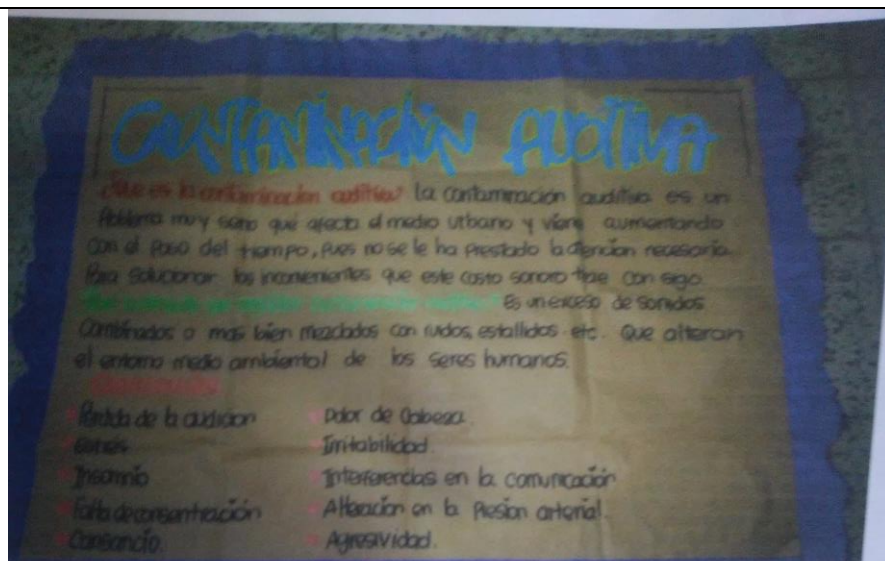 CONTAMINACIÓN AUDITIVA
¿Que es la contaminacion auditiva? La contaminación auditiva es un
Problema muy serio que afecta el medio urbano y viene aumentando
Con el Paso del tiempo, Pues no se le ha Prestado la atencion necesaria
Para Solucionar los inconvenientes que este costo sonoro trae Con sigo.
contaminación auditiva? Es un exceso de Sonidos
Combinados o mas bien mezclados con ruidos, estallidos etc. Que alteran
el entorno medio ambiental de los Seres humanos.
Perdida de la audicion Dolor de Cabeza.
Estres Irritabilidad.
Insomnio Interferencias en la comunicación
Falta de consentración Alteracion en la Presion arterial.
Cansancio. Agresividad.